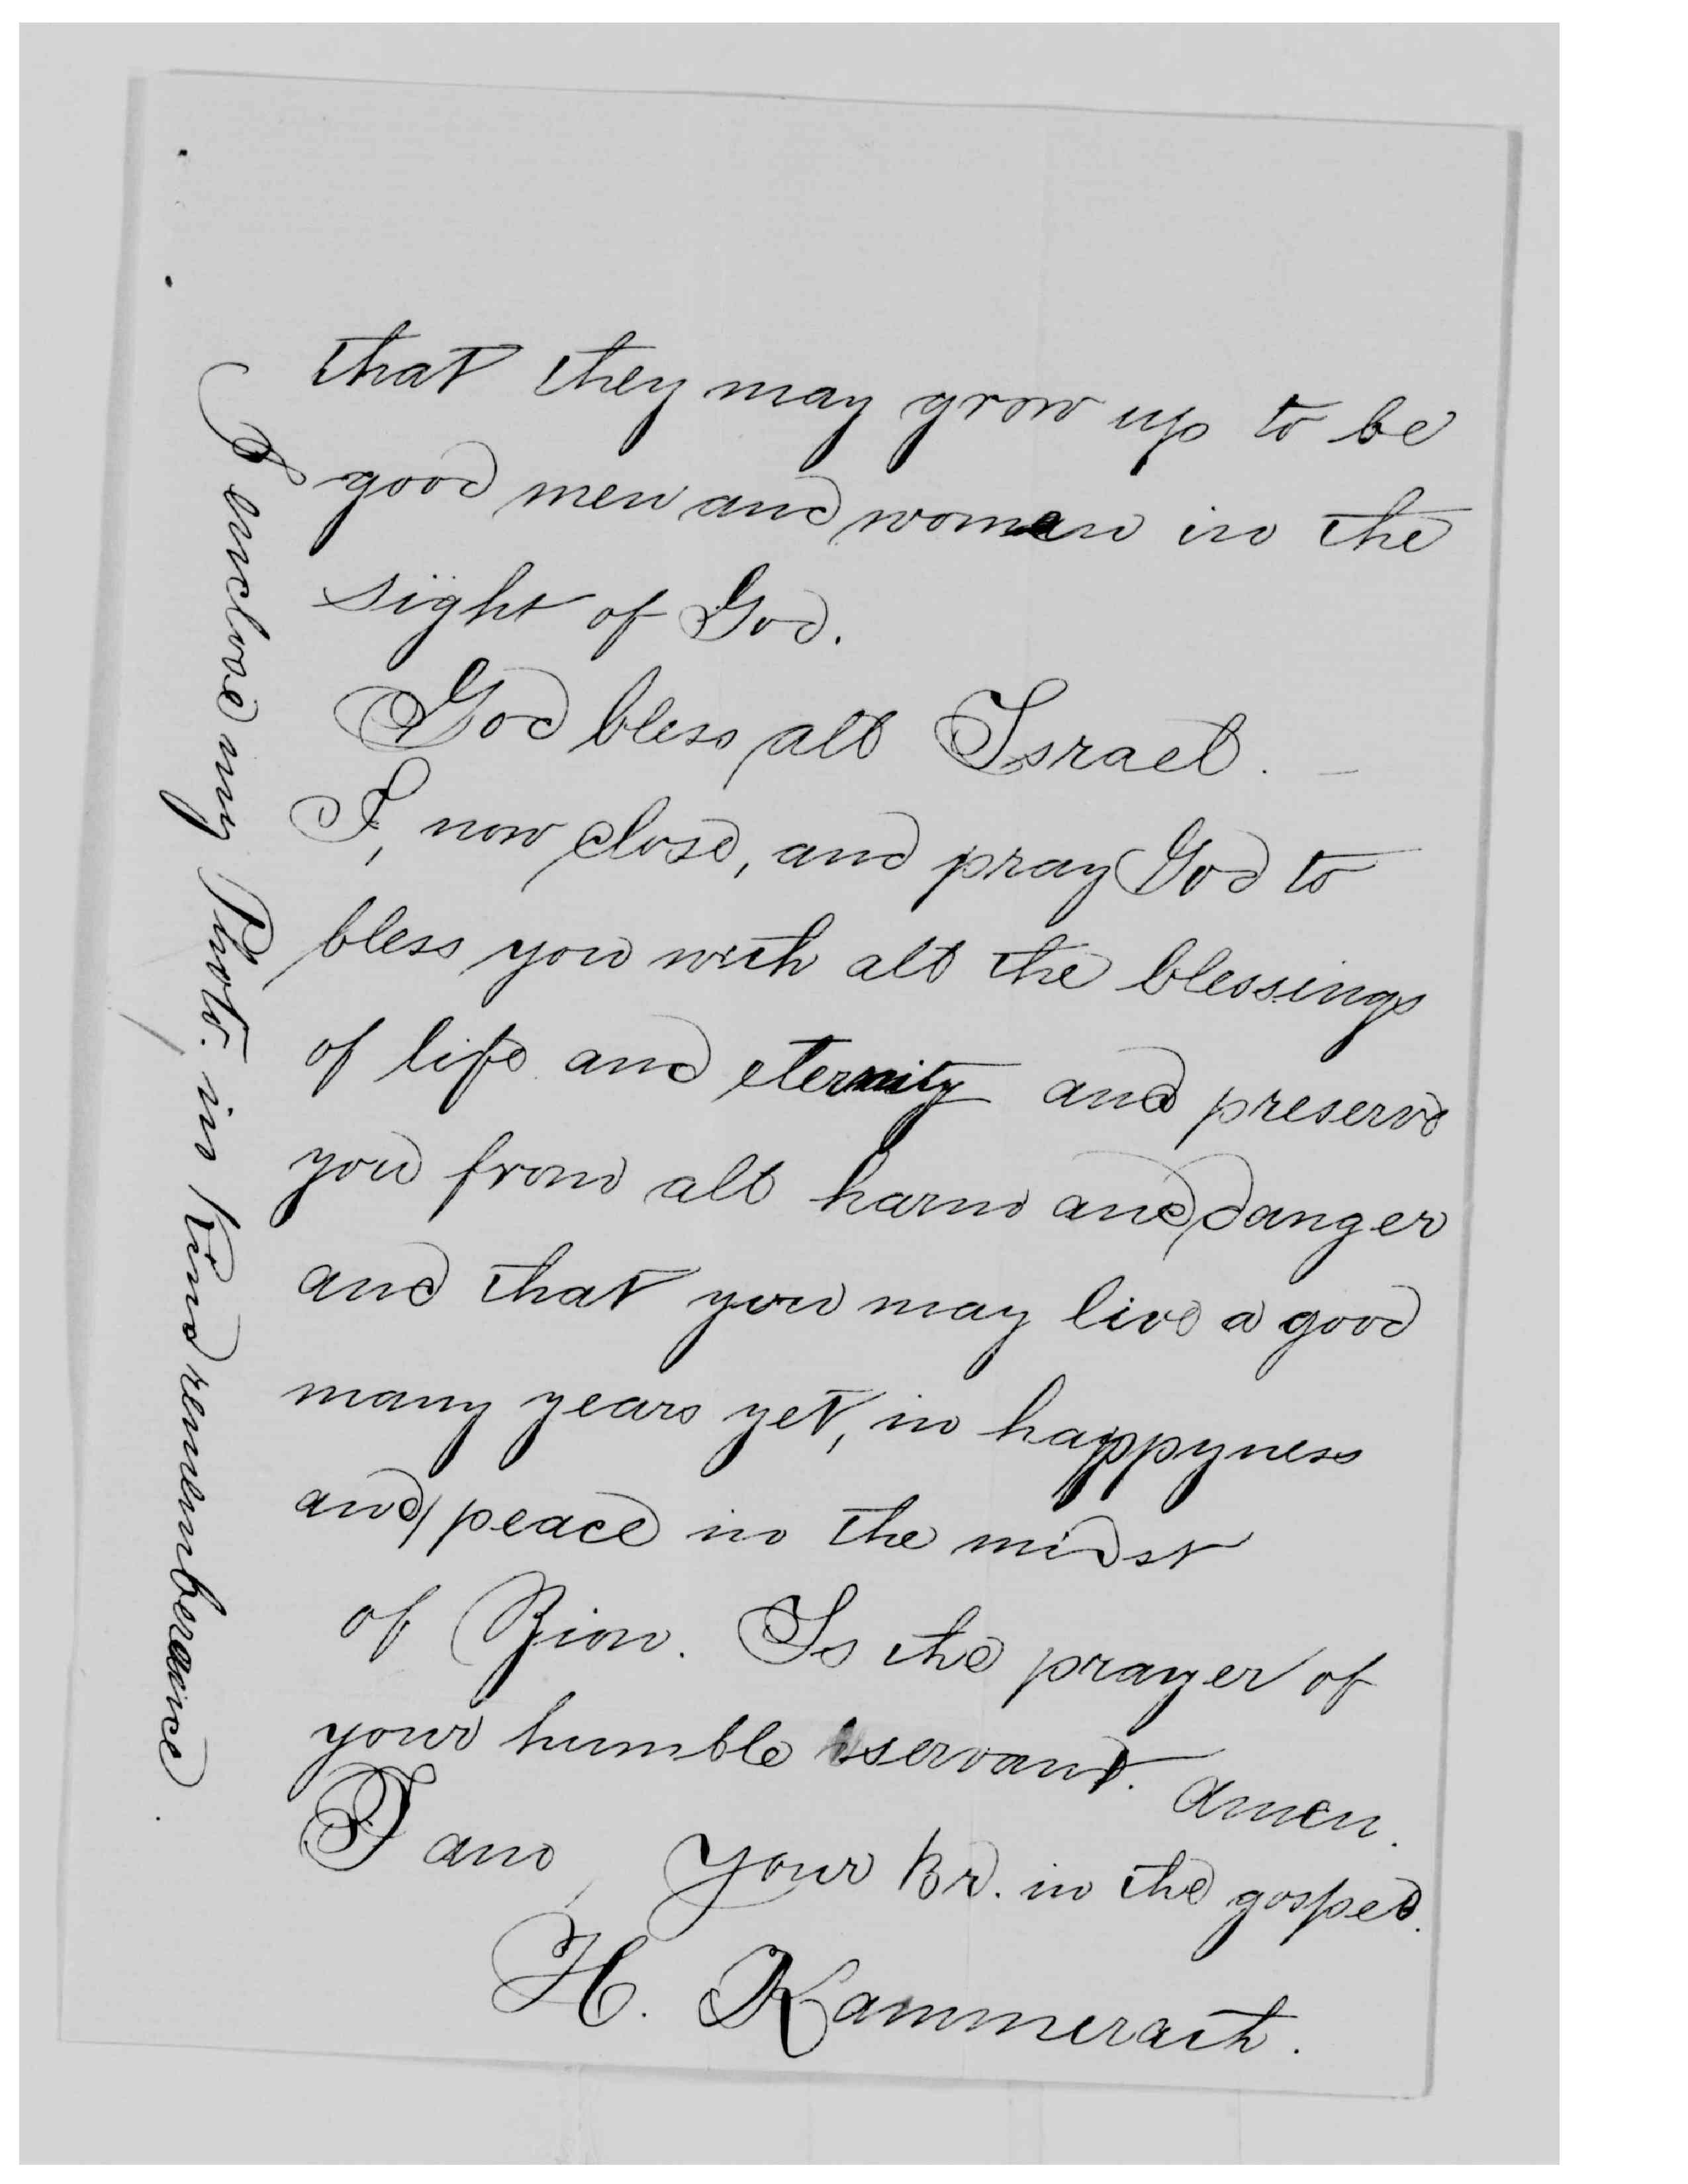 that they may grow up to be
good men and women in the
sight of God.
God bless all Israel. –
I, now close, and pray God to
bless you with all the blessings
of life and eternity and preserve
you from all harm and danger
and that you may live a good
many years yet, in happyness
and peace in the midst
of Zion. Is the prayer of
your humble servant. Amen.
I am, your Br. in the gospel.
H. Kammerath.
I inclose my Photo. in kind rememberance.